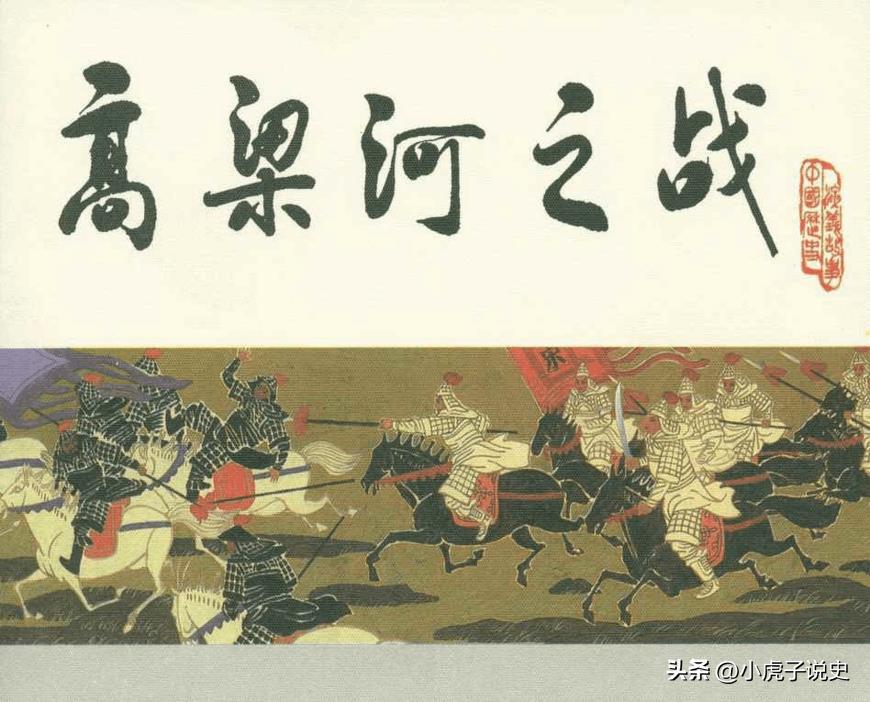 高梁河之战
中國歷史
演義故事
宋
头条 @小虎子说史